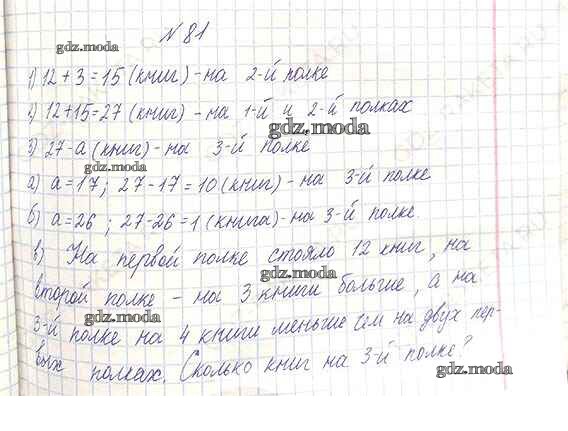 № 81
gdz.moda
1) 12 + 3 = 15 (книг) - на 2-й полке
2) 12+15=27 (книг) - на 1-й и 2-й полках
gdz.moda
3) 27 - а (книг) - на 3-й полке
gdz.moda
а) а = 17; 27 - 17 = 10 (книг) - на 3-й полке
б) а = 26; 27 - 26 = 1 (книга) - на 3-й полке.
в) На первой полке стояло 12 книг, на
gdz.moda
второй полке - на 3 книги больше, а на
gdz.moda
3-й полке на 4 книги меньше чем на двух пер-
вых полках. Сколько книг на 3-й полке?
gdz.moda